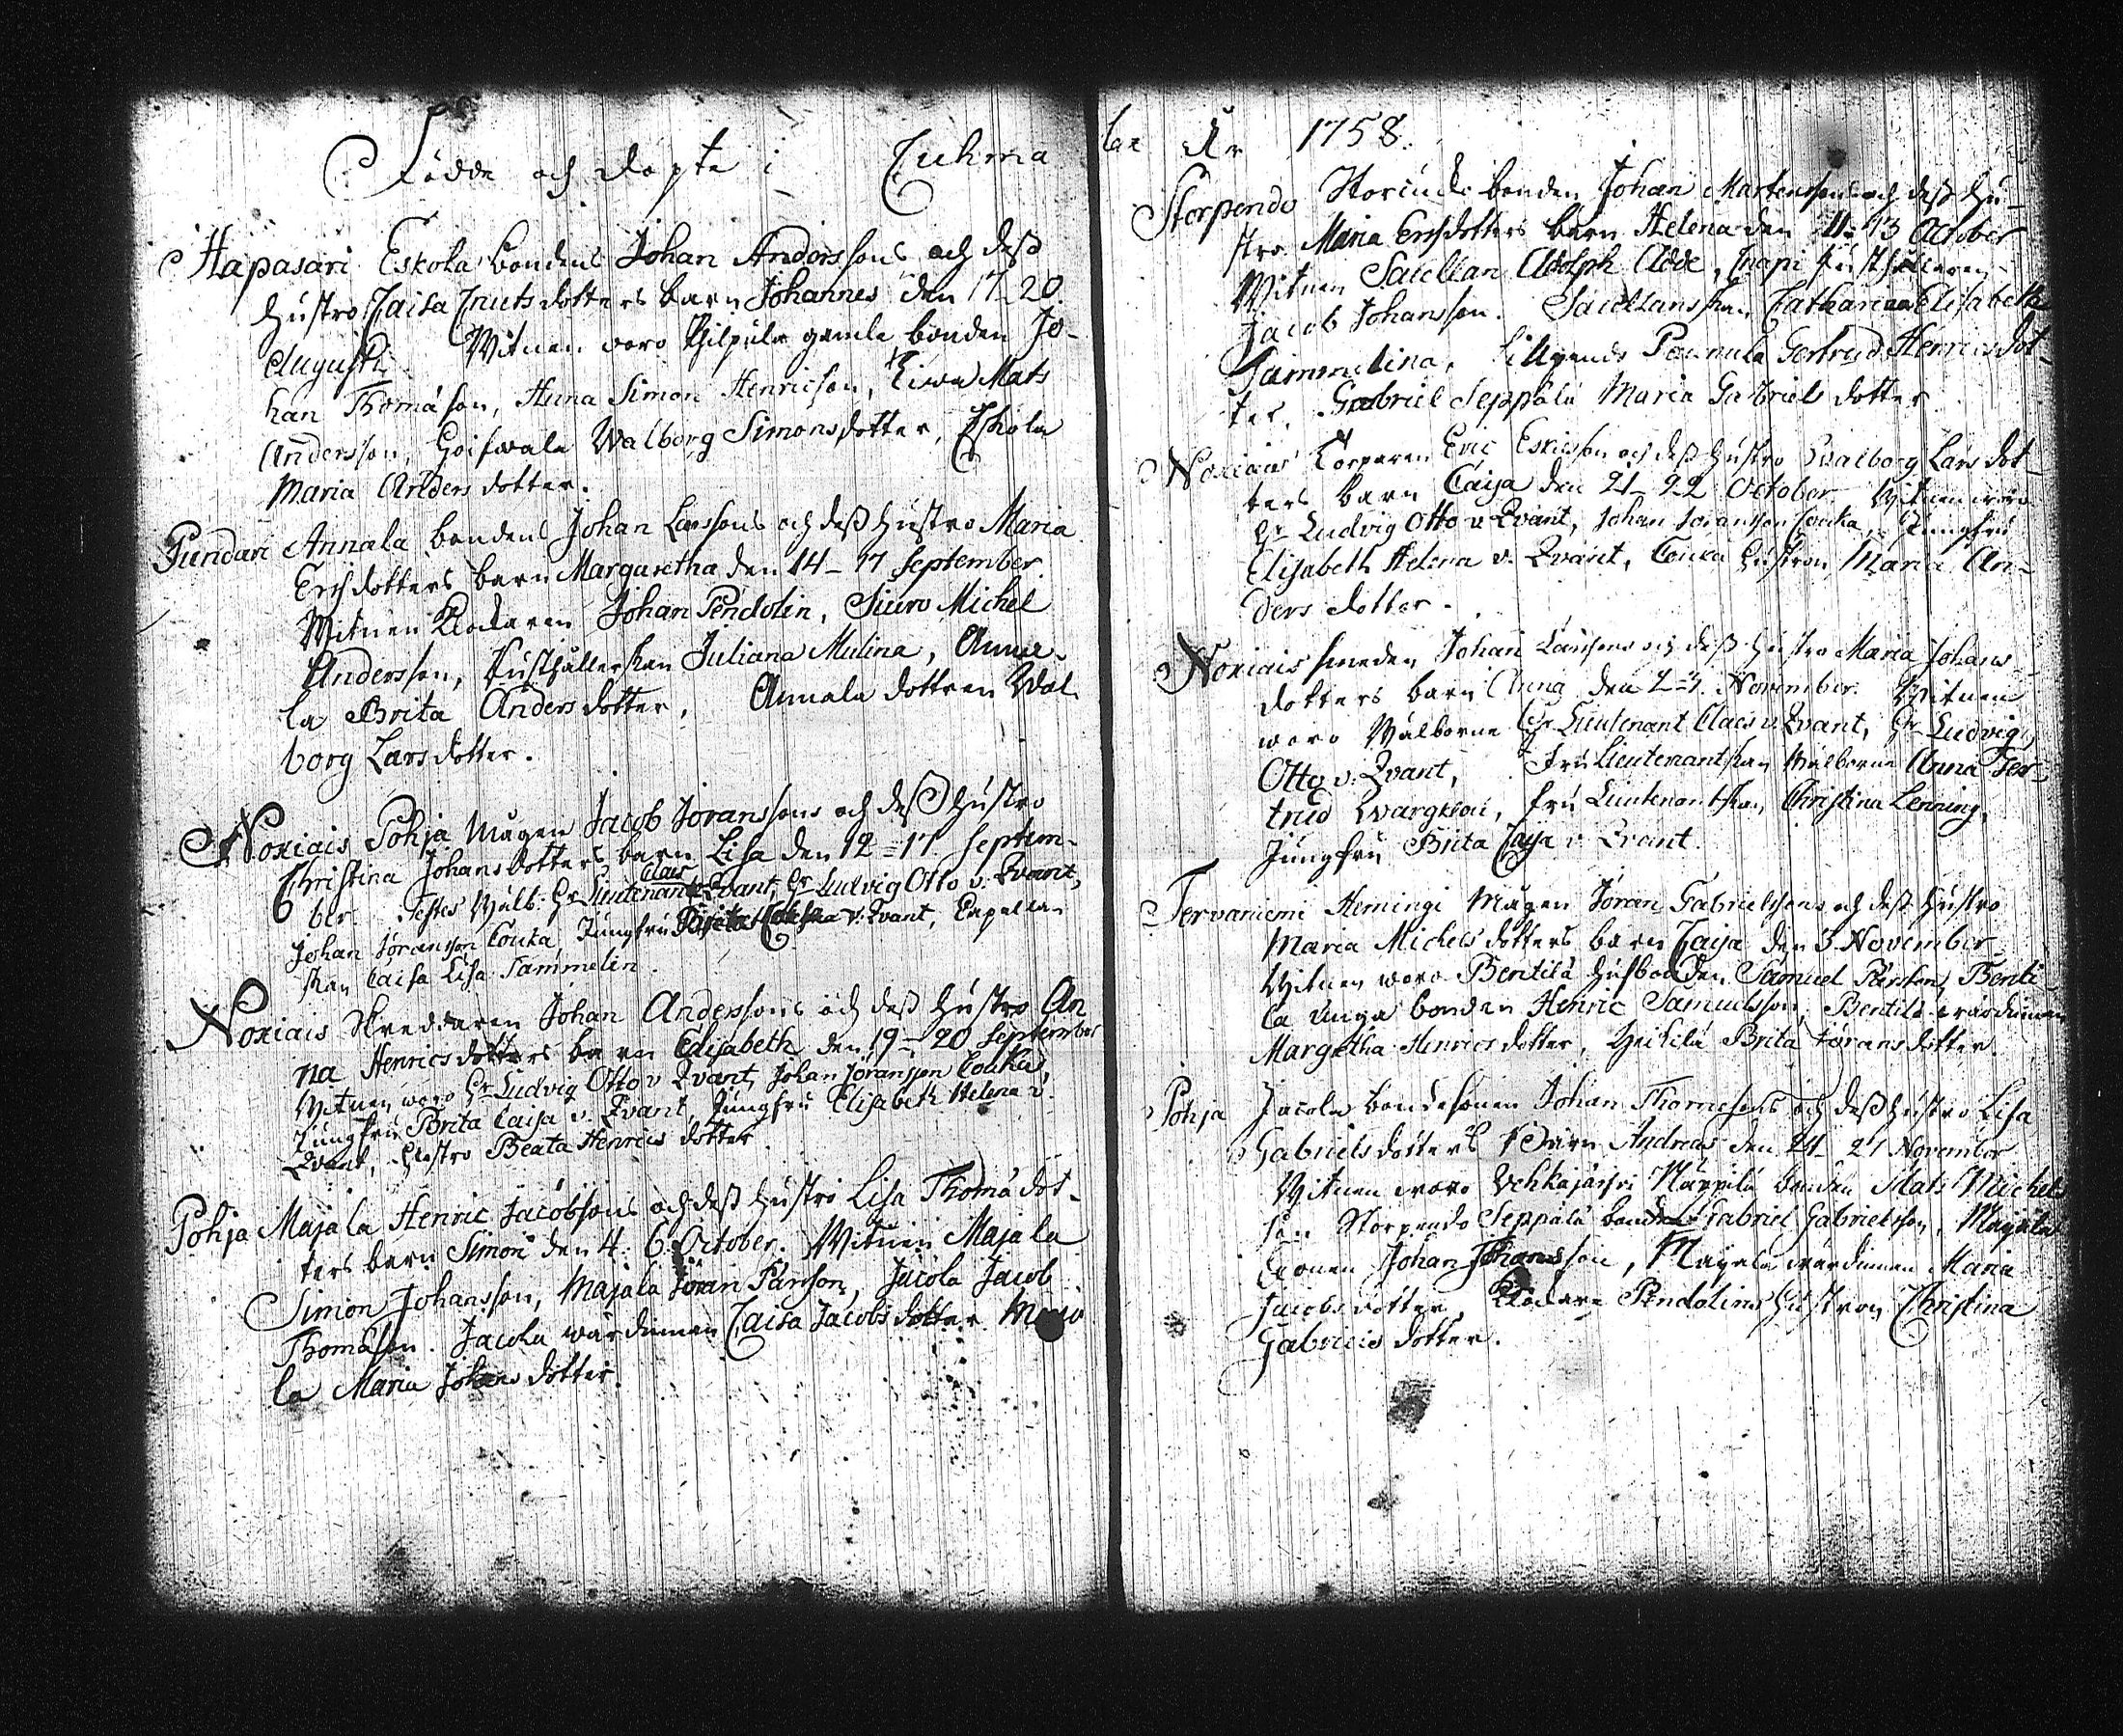 Födde och döpte i Cuhma
Hapasari Eskola bondens Johan Anderssons och dess
hustro Caisa Cnutsdotters barn Johannes den 17-20
Augusti. Witnen woro Philpula gamle bonden Jo-
han Thomason, Anna Simon Henricson, Mats
Andersson, Walborg Simonsdotter, Eskola
Maria Andersdotter.
Pundari Annala bondens Johan Larssons och dess hustro Maria
Erichdotters barn Margaretha den 14-17 September.
Witnen Klockaren Johan Pendolin, Siuro Michel
Andersson, Rusthållerskan Juliana Mulina, Anna-
la Brita Andersdotter, Annala dottren Wal-
borg Larsdotter.
Noxiais Pohja Mågen Jacob Joranssons och dess hustro
Christina Johansdotters barn Lisa den 12-17 Septem-
ber. Testes Wälb: Hr Lieutenant Claes v. Qvant, Hr Ludvig Otto v. Qvant,
Johan Joransson Couka, Jungfru v. Qvant, Capellan
skan Caisa Lisa Tammelin.
Noxiais Skreddaren Johan Anderssons och dess hustro An
na Henricsdotters barn Elisabeth den 19-20 September
Witnen woro Hr Ludvig Otto v Qvant, Johan Joransson Couka
Jungfru Brita Caisa v. Qvant, Jungfru Elisabeth Helena v.
Qvant, Hustro Beata Henrics dotter.
Pohja Majala Henric Jacobsons och dess hustro Lisa Thomādot-
ters barn Simon den 4. 6 October. Witnen Majala
Simon Johansson, Majala Jöran Pärsson, Jacola Jacob
Thomasson. Jacola wärdinnan Caisa Jacobsdotter Maja
la Maria Johansdotter.
lax År 1758.
Storpendo bonden Johan Mårtenssons och dess hu-
stro Maria Erichsdotters barn Helena den 11-13 October
Witnen Sacellan Adolph Adde, Knapi Rusthållaren
Jacob Johansson. Sacellanskan Catharina Elisabeth
Tammelina, Lillpendo Gertrud Henricsdot-
ter. Gabriel Seppälä Maria Gabriels dotter
Noxiais Torparen Eric Ericsson och dess hustro Walborg Larsdot-
ters barn Caisa den 21-22 October. Witnen woro
Hr Ludvig Otto v Qvant, Johan Joransson Couka, Jungfru
Elisabeth Helena v. Qvant, Couka hustron Maria An-
ders dotter.
Noxiais smeden Johan Larssons och dess hustro Maria Johans-
dotters barn Anna den 2-3. November. Witnen
woro Wälborne Hr Lieutenant Claes v. Qvant, Hr Ludvig
Otto v. Qvant, Fru Lieutenantskan Wälborne Anna Ger-
trud, fru Lieutenantskan Christina Lenning,
Jungfru Brita Caisa v. Qvant.
Tervaniemi Hemingi Mågen Jöran Gabrielssons och dess hustro
Maria Michelsdotters barn Caisa den 3 November
Witnen woro Bentilä husbonden Samuel Pärsson, Benti-
la unga bonden Henric Samuelsson, Bentilä wärdinnan
Margetha Henricsdotter, Heikilä Brita Jöransdotter.
Pohja Jacola bondesonen Johan Thomesons och dess hustro Lisa
Gabrielsdotters barn Andreas den 21 November
Witnen woro Vehkajärfvi Näppilä bonden Mats Michels-
son Storpendo Seppälä bonden Gabriel Gabrielsson, Majala
sonen Johan Johansson, Majala wärdinnan Maria
Jacobsdotter, Klockare Pendolins hustron Christina
Gabriels dotter.